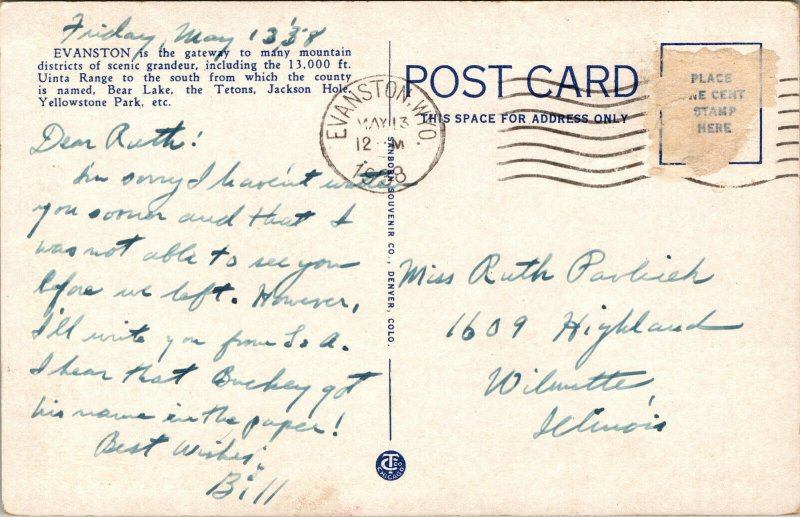 Friday, May 13 '38
EVANSTON is the gateway to many mountain
districts of scenic grandeur, including the 13,000 ft.
Uinta Range to the south from which the county
is named, Bear Lake, the Tetons, Jackson Hole,
Yellowstone Park, etc.
Dear Ruth!
Im sorry I haven't written
you sooner and that I
was not able to see you
before we left. However,
I'll write you from So A.
I hear that Buckey got
his name in the paper!
Best Wishes,
Bill
EVANSTON, WYO.
MAY 13
12 M
1938
POST CARD
THIS SPACE FOR ADDRESS ONLY
PLACE
NE CENT
STAMP
HERE
SANBORN SOUVENIR CO., DENVER, COLO.
Miss Ruth
1609 Highland
Wilmette,
Illinois
CHICAGO